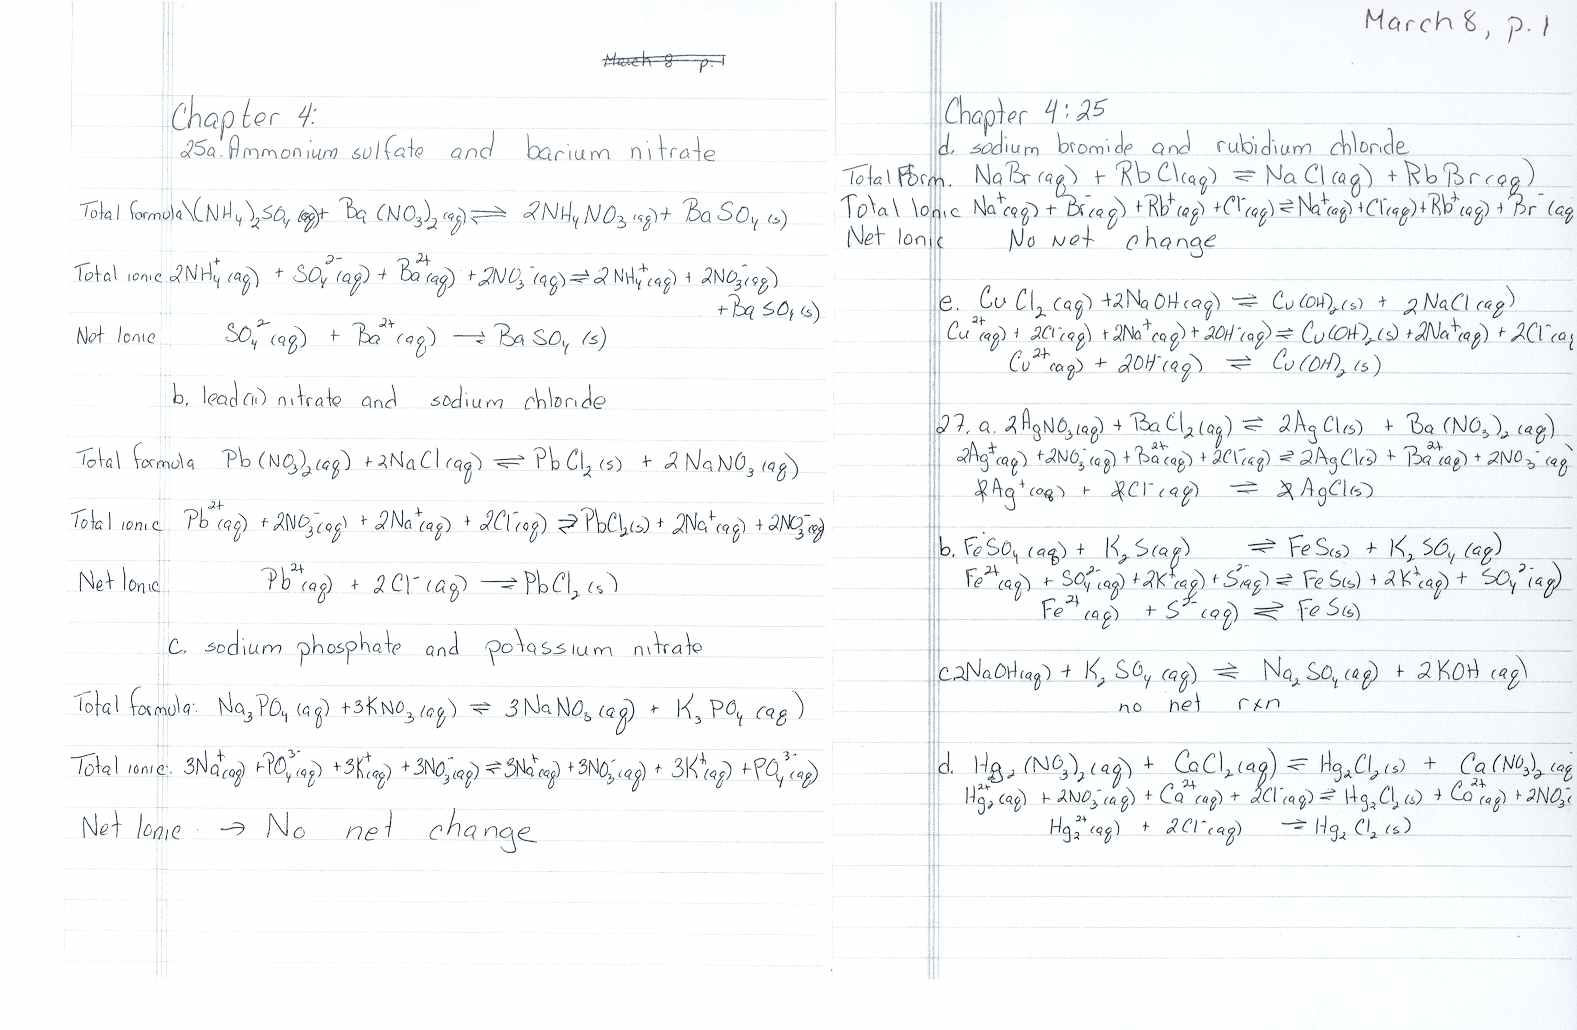 March 8 p. 1
Chapter 4:
25a. Ammonium sulfate and barium nitrate
Total formula (NH₄)₂SO₄ (aq) + Ba(NO₃)₂ (aq) ⇌ 2NH₄NO₃ (aq) + BaSO₄ (s)
Total ionic 2NH₄⁺ (aq) + SO₄²⁻ (aq) + Ba²⁺ (aq) + 2NO₃⁻ (aq) ⇌ 2NH₄⁺ (aq) + 2NO₃⁻ (aq)
+ BaSO₄ (s)
Net Ionic SO₄²⁻ (aq) + Ba²⁺ (aq) → BaSO₄ (s)
b. lead(II) nitrate and sodium chloride
Total formula Pb(NO₃)₂ (aq) + 2NaCl (aq) ⇌ PbCl₂ (s) + 2NaNO₃ (aq)
Total ionic Pb²⁺ (aq) + 2NO₃⁻ (aq) + 2Na⁺ (aq) + 2Cl⁻ (aq) ⇌ PbCl₂ (s) + 2Na⁺ (aq) + 2NO₃⁻ (aq)
Net Ionic Pb²⁺ (aq) + 2Cl⁻ (aq) → PbCl₂ (s)
c. sodium phosphate and potassium nitrate
Total formula: Na₃PO₄ (aq) + 3KNO₃ (aq) ⇌ 3NaNO₃ (aq) + K₃PO₄ (aq)
Total ionic: 3Na⁺ (aq) + PO₄³⁻ (aq) + 3K⁺ (aq) + 3NO₃⁻ (aq) ⇌ 3Na⁺ (aq) + 3NO₃⁻ (aq) + 3K⁺ (aq) + PO₄³⁻ (aq)
Net Ionic → No net change
March 8, p. 1
Chapter 4: 25
d. sodium bromide and rubidium chloride
Total Form. NaBr (aq) + RbCl (aq) ⇌ NaCl (aq) + RbBr (aq)
Total Ionic Na⁺ (aq) + Br⁻ (aq) + Rb⁺ (aq) + Cl⁻ (aq) ⇌ Na⁺ (aq) + Cl⁻ (aq) + Rb⁺ (aq) + Br⁻ (aq
Net Ionic No net change
e. CuCl₂ (aq) + 2NaOH (aq) ⇌ Cu(OH)₂ (s) + 2NaCl (aq)
Cu²⁺ (aq) + 2Cl⁻ (aq) + 2Na⁺ (aq) + 2OH⁻ (aq) ⇌ Cu(OH)₂ (s) + 2Na⁺ (aq) + 2Cl⁻ (aq
Cu²⁺ (aq) + 2OH⁻ (aq) ⇌ Cu(OH)₂ (s)
27. a. 2AgNO₃ (aq) + BaCl₂ (aq) ⇌ 2AgCl (s) + Ba(NO₃)₂ (aq)
2Ag⁺ (aq) + 2NO₃⁻ (aq) + Ba²⁺ (aq) + 2Cl⁻ (aq) ⇌ 2AgCl (s) + Ba²⁺ (aq) + 2NO₃⁻ (aq)
2Ag⁺ (aq) + 2Cl⁻ (aq) ⇌ 2AgCl (s)
b. FeSO₄ (aq) + K₂S (aq) ⇌ FeS (s) + K₂SO₄ (aq)
Fe²⁺ (aq) + SO₄²⁻ (aq) + 2K⁺ (aq) + S²⁻ (aq) ⇌ FeS (s) + 2K⁺ (aq) + SO₄²⁻ (aq)
Fe²⁺ (aq) + S²⁻ (aq) ⇌ FeS (s)
c. 2NaOH (aq) + K₂SO₄ (aq) ⇌ Na₂SO₄ (aq) + 2KOH (aq)
no net rxn
d. Hg₂(NO₃)₂ (aq) + CaCl₂ (aq) ⇌ Hg₂Cl₂ (s) + Ca(NO₃)₂ (aq
Hg₂²⁺ (aq) + 2NO₃⁻ (aq) + Ca²⁺ (aq) + 2Cl⁻ (aq) ⇌ Hg₂Cl₂ (s) + Ca²⁺ (aq) + 2NO₃⁻ (
Hg₂²⁺ (aq) + 2Cl⁻ (aq) ⇌ Hg₂Cl₂ (s)